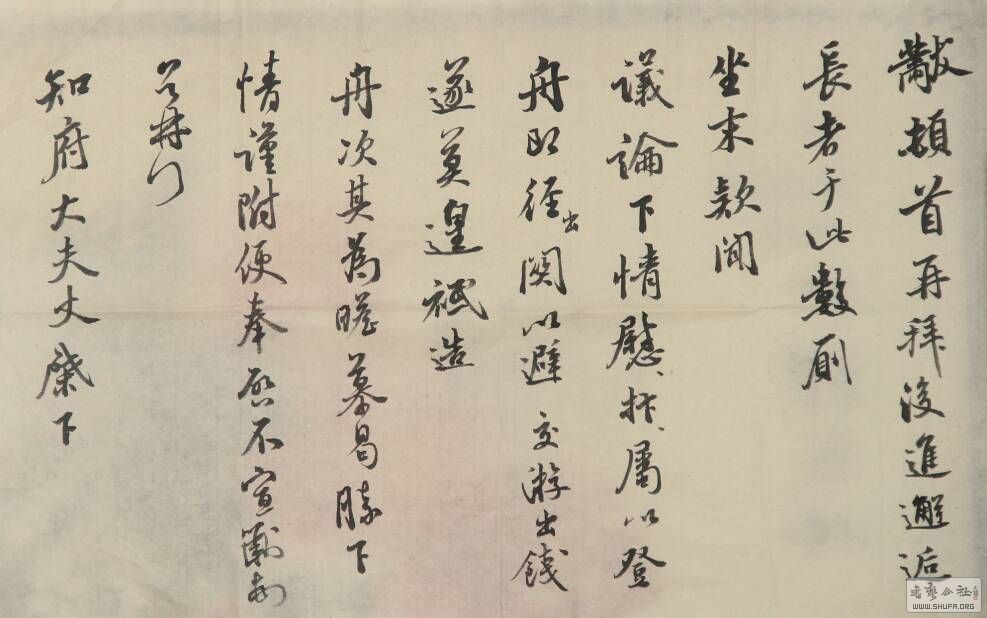 黻頓首再拜後進邂逅
長者于此數厠
坐末款聞
議論下情慰、忭、屬以登
舟即徑出關以避交游出餞
遂莫遑祗造
舟次其為瞻慕曷勝下
情謹附便奉啓不宣黻頓
知府大夫丈棨下
書藝公社
WWW.SHUFA.ORG